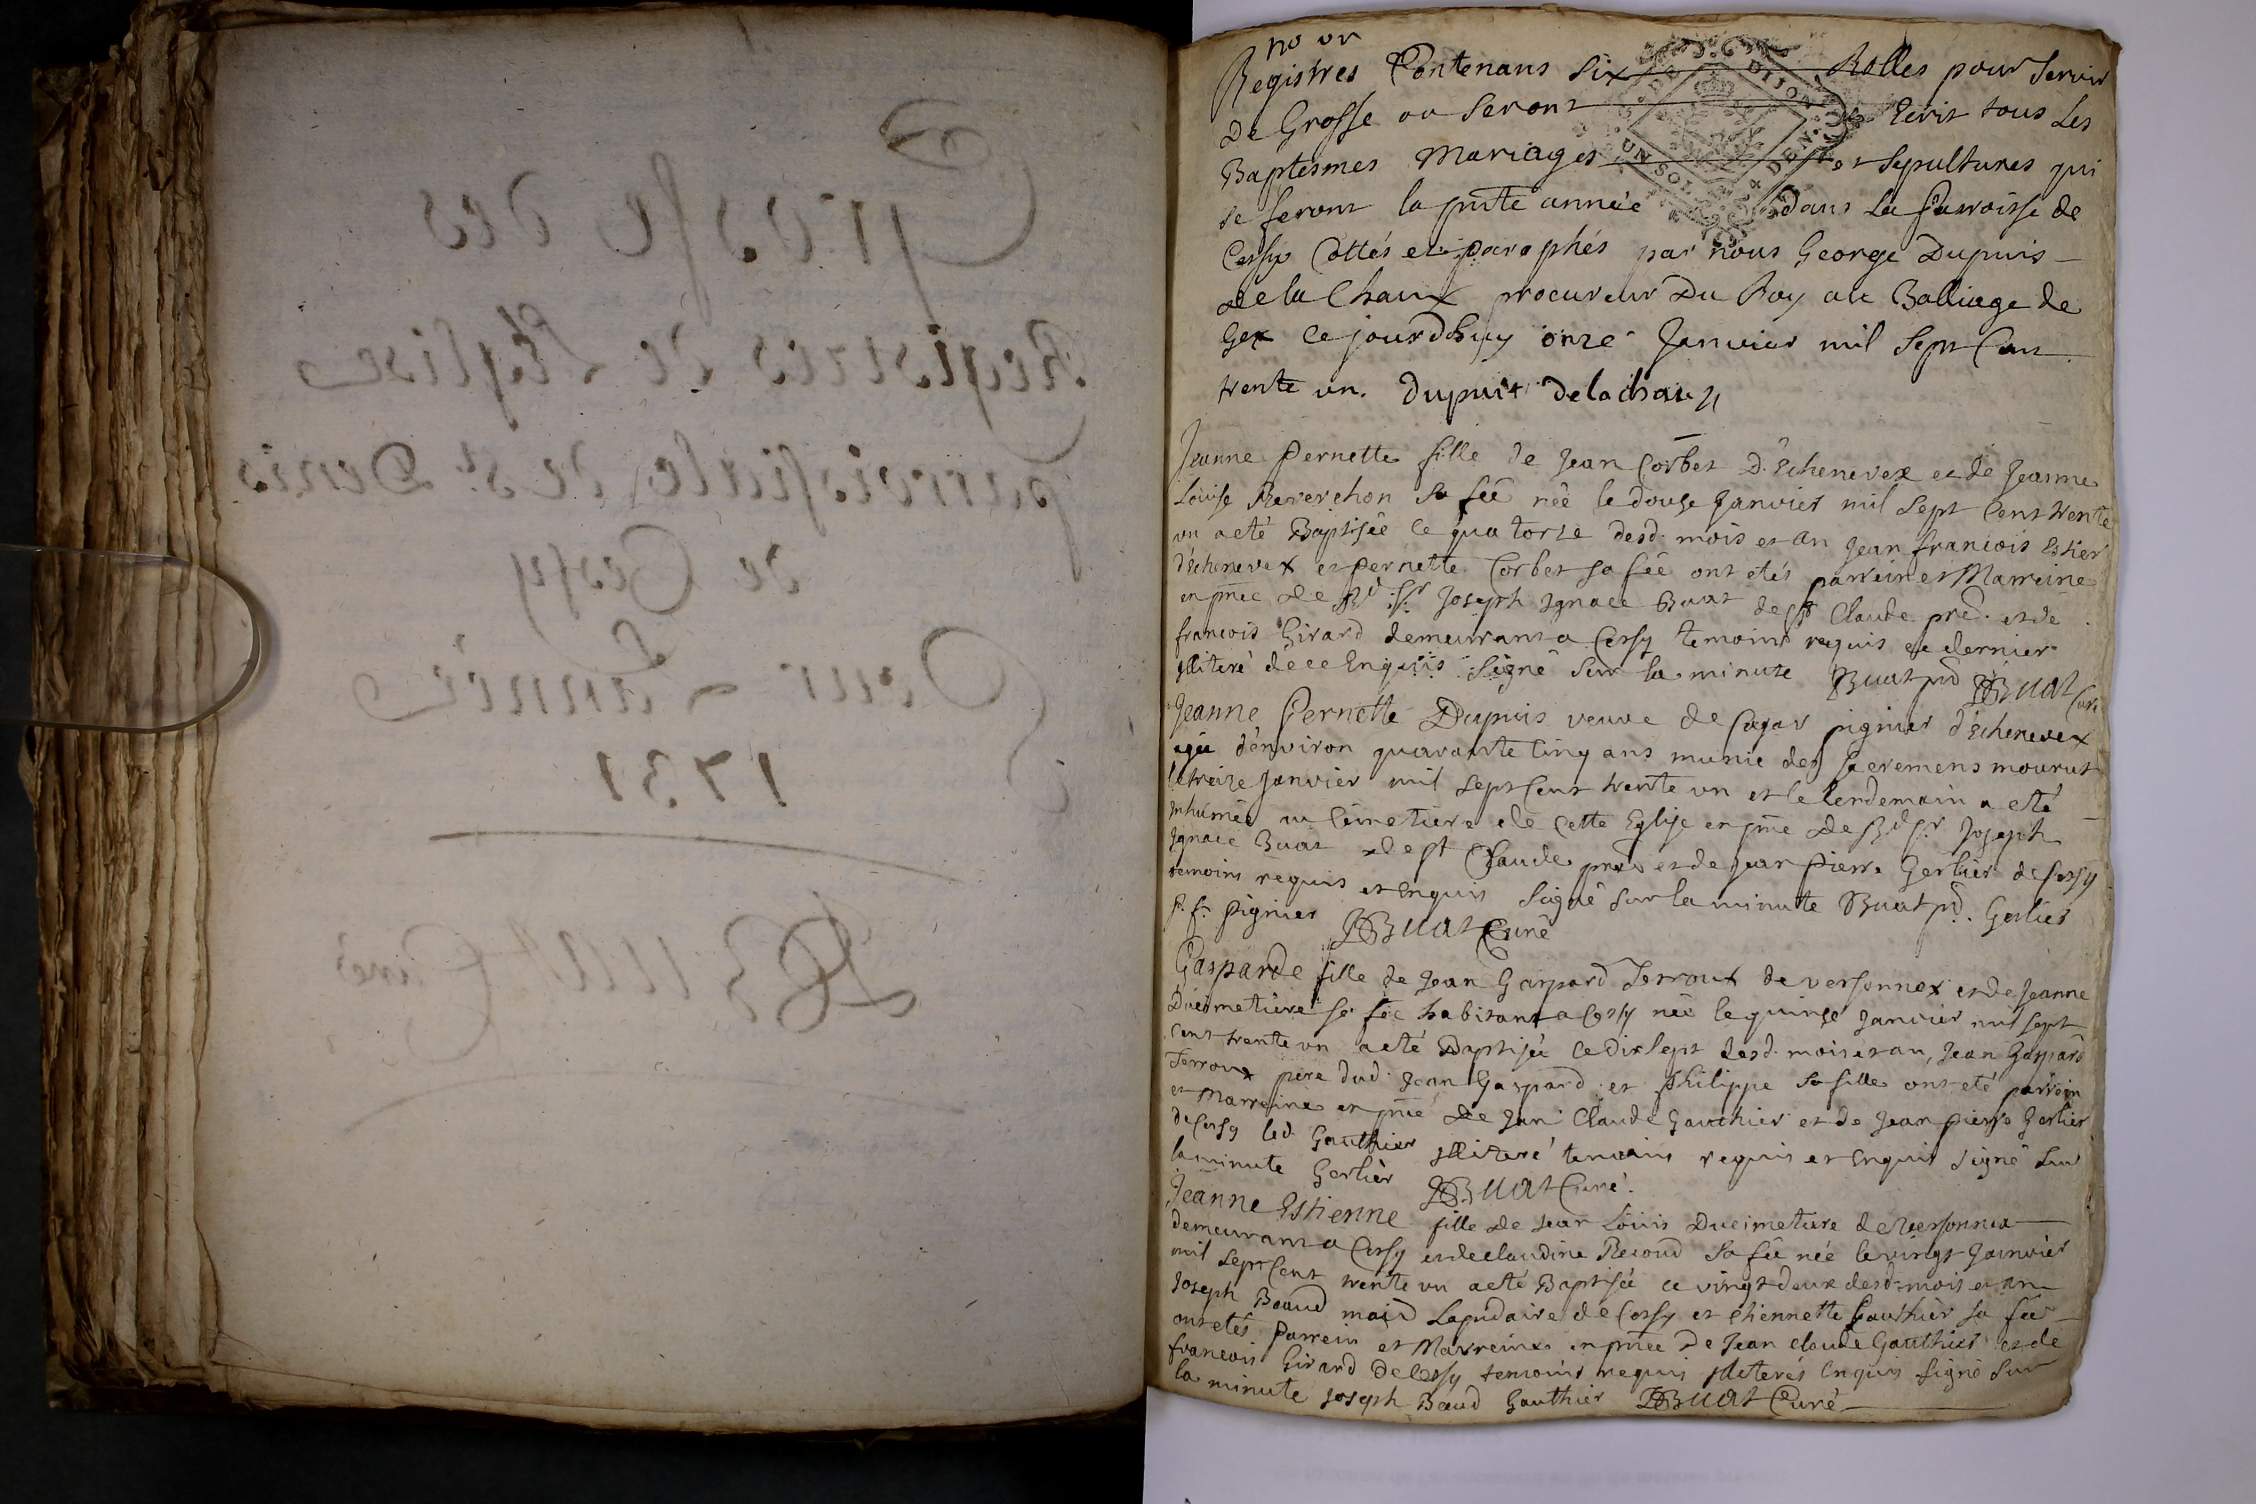 Grosse des
Registres de L'Eglise
parroissiale de St. Denis
de Cessy
Pour L'année
1731
Buat Curé
no un
Registres Contenans Six Rolles pour Servir
de Grosse ou Seront Ecrit tous Les
Baptesmes Mariages et Sepultures qui
se feront la pñte année dans La Parroisse de
Cessy Cottés et paraphés par nous George Dupuis
de la Chaux procureur Du Roy au Balliage de
Gex Ce jourdhuy onze Janvier mil Sept Cent
trente un. Dupuit Delachaux
DIJON
UN SOL 4 DEN.
Jeanne Pernette fille de Jean Corbet D'Echenevex et de Jeanne
Louise Reverchon Sa fẽe née le douze Janvier mil Sept Cent trente
un a eté Baptisée le quatorze desd. mois et an Jean francois Estier
d'Echenevex et pernette Corbet sa fẽe ont etés parrein et Marreine
en pñce de Rd. Sr. Joseph Ignace Buat de St Claude prẽ. et de
francois Girard demeurant a Cessy temoins requis ce dernier
Illiteré de ce Enquis Signé Sur la minute Buat prẽ JBuat Curé
Jeanne Pernette Dupuis veuve de Cesar pignier d'Echenevex
agée d'environ quarante Cinq ans munie des Sacremens mourut
le treize Janvier mil Sept Cent trente un et le lendemain a eté
Inhumée au Cimetiere de Cette Eglise en pñce de Rd Sr. Joseph
Ignace Buat de St Claude prẽ et de Jean Pierre Gerlier de Cessy
temoins requis et Enquis Signé Sur la minute Buat prẽ. Gerlier
p. f. Pignier JBuat Curé
Gasparde fille de Jean Gaspard Terroux de Versonnex et de Jeanne
Ducimetiere Sa fẽe habitant a Cessy née le quinze Janvier mil Sept
Cent trente un a eté Baptisée Ce dix Sept desd. mois et an, Jean Gaspard
Terroux pere dud. Jean Gaspard et Philippe Sa fille ont eté parrein
et Marreine en pñce de Jean Claude Gauthier et de Jean pierre Gerlier
de Cessy led. Gauthier Illiteré temoins requis et Enquis Signé Sur
la minute Gerlier JBuat Curé.
Jeanne Estienne fille de Jean Louis Ducimetiere de Versonnex
demeurant a Cessy et de Claudine Recoud Sa fẽe née le vingt Janvier
mil Sept Cent trente un a eté Baptisée ce vingt deux desd. mois et an
Joseph Baaud Lapidaire de Cessy et Etiennette Gauthier sa fẽe
ont etés Parrein et Marreine en pñce de Jean Claude Gauthier et de
francois Girard de Cessy temoins requis Illeterés Enquis Signé Sur
la minute Joseph Baud Gauthier JBuat Curé